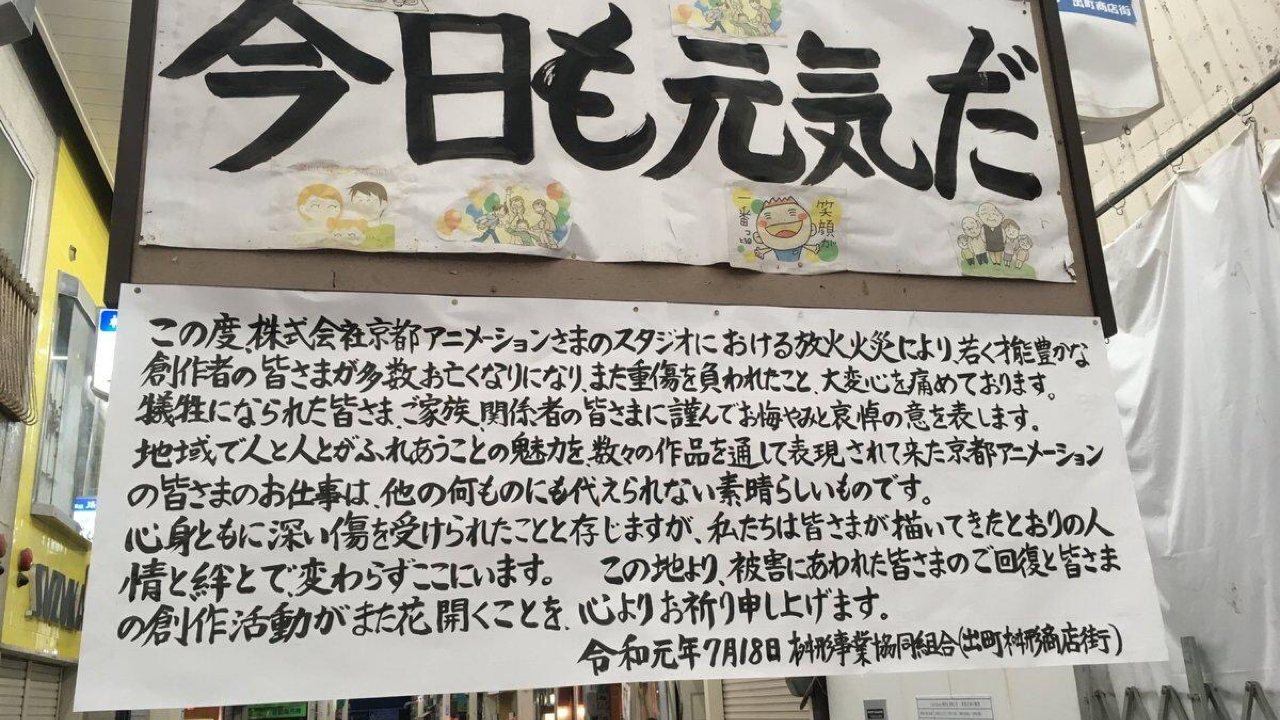 出町商店街
今日も元気だ
笑顔が
一番
この度、株式会社京都アニメーションさまのスタジオにおける放火火災により、若く才能豊かな
創作者の皆さまが多数お亡くなりになり、また重傷を負われたこと、大変心を痛めております。
犠牲になられた皆さま、ご家族、関係者の皆さまに謹んでお悔やみと哀悼の意を表します。
地域で人と人とがふれあうことの魅力を、数々の作品を通して表現されて来た京都アニメーション
の皆さまのお仕事は、他の何ものにも代えられない素晴らしいものです。
心身ともに深い傷を受けられたことと存じますが、私たちは皆さまが描いてきたとおりの人
情と絆とで、変わらずここにいます。 この地より、被害にあわれた皆さまのご回復と皆さま
の創作活動がまた花開くことを、心よりお祈り申し上げます。
令和元年7月18日 桝形事業協同組合(出町桝形商店街)